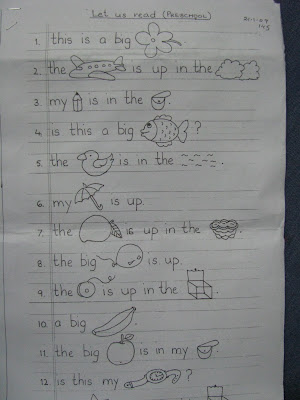 Let us read (PRESCHOOL)
1. this is a big .
2. the is up in the
3. my is in the .
4. is this a big ?
5. the is in the .
6. my is up.
7. the is up in the .
8. the big is up.
9. the is up in the .
10. a big .
11. the big is in my .
12. is this my ?